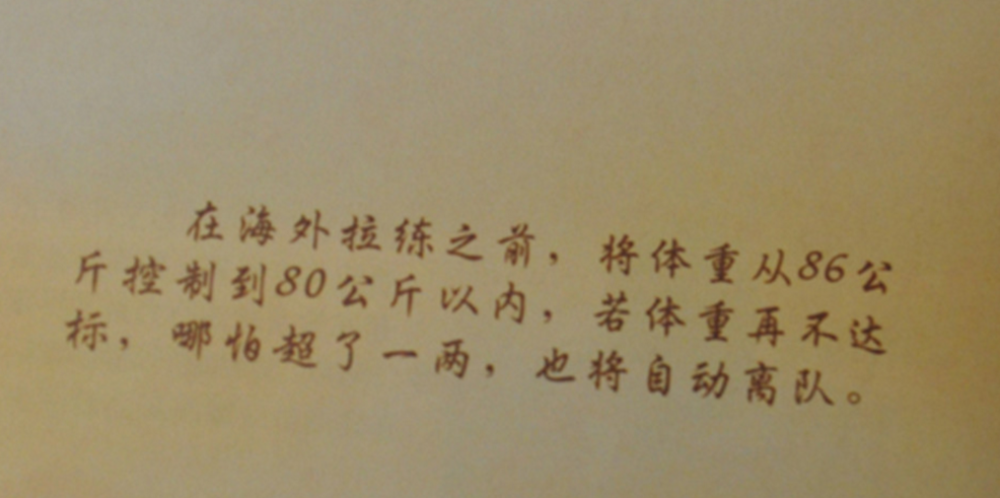 在海外拉练之前，将体重从86公
斤控制到80公斤以内，若体重再不达
标，哪怕超了一两，也将自动离队。